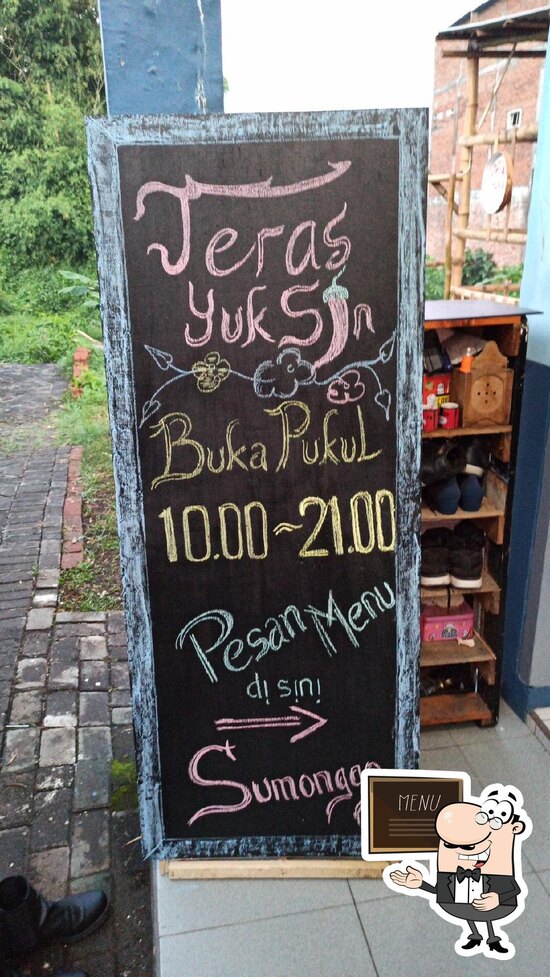 Teras
Yuk Sin
Buka Pukul
10.00 ~ 21.00
Pesan Menu
disini
Sumonggo
MENU